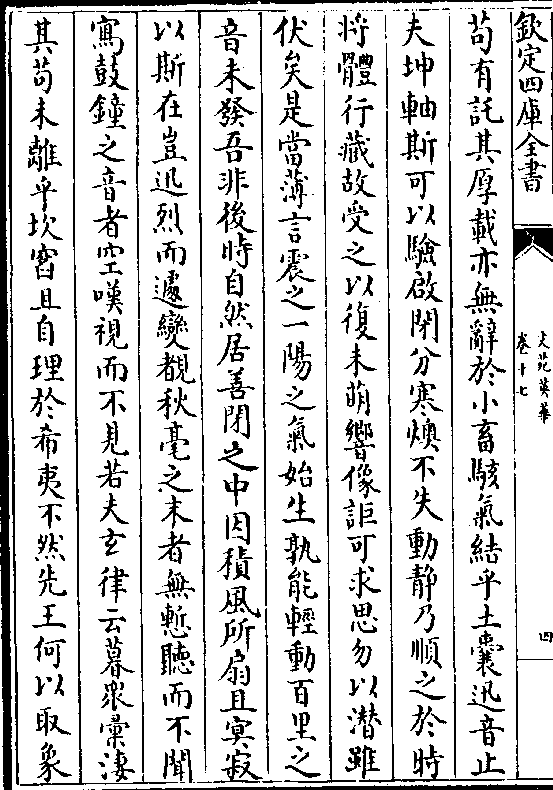 欽定四庫全書
文苑英華
卷十七
四
苟有託其厚載亦無辭於小畜駭氣結乎土囊迅音止
夫坤軸斯可以驗啟閉分寒燠不失動静乃順之於時
將體行藏故受之以復未萌響像詎可求思勿以潜雖
伏矣是當薄言震之一陽之氣始生孰能輕動百里之
音未發吾非後時自然居善閉之中因積風所扇且𡨋寂
以斯在豈迅烈而遽變覩秋毫之末者無慙聽而不聞
寫鼓鐘之音者空嘆視而不見若夫玄律云暮衆彚淒
其苟未離乎坎窞且自理於希夷不然先王何以取象